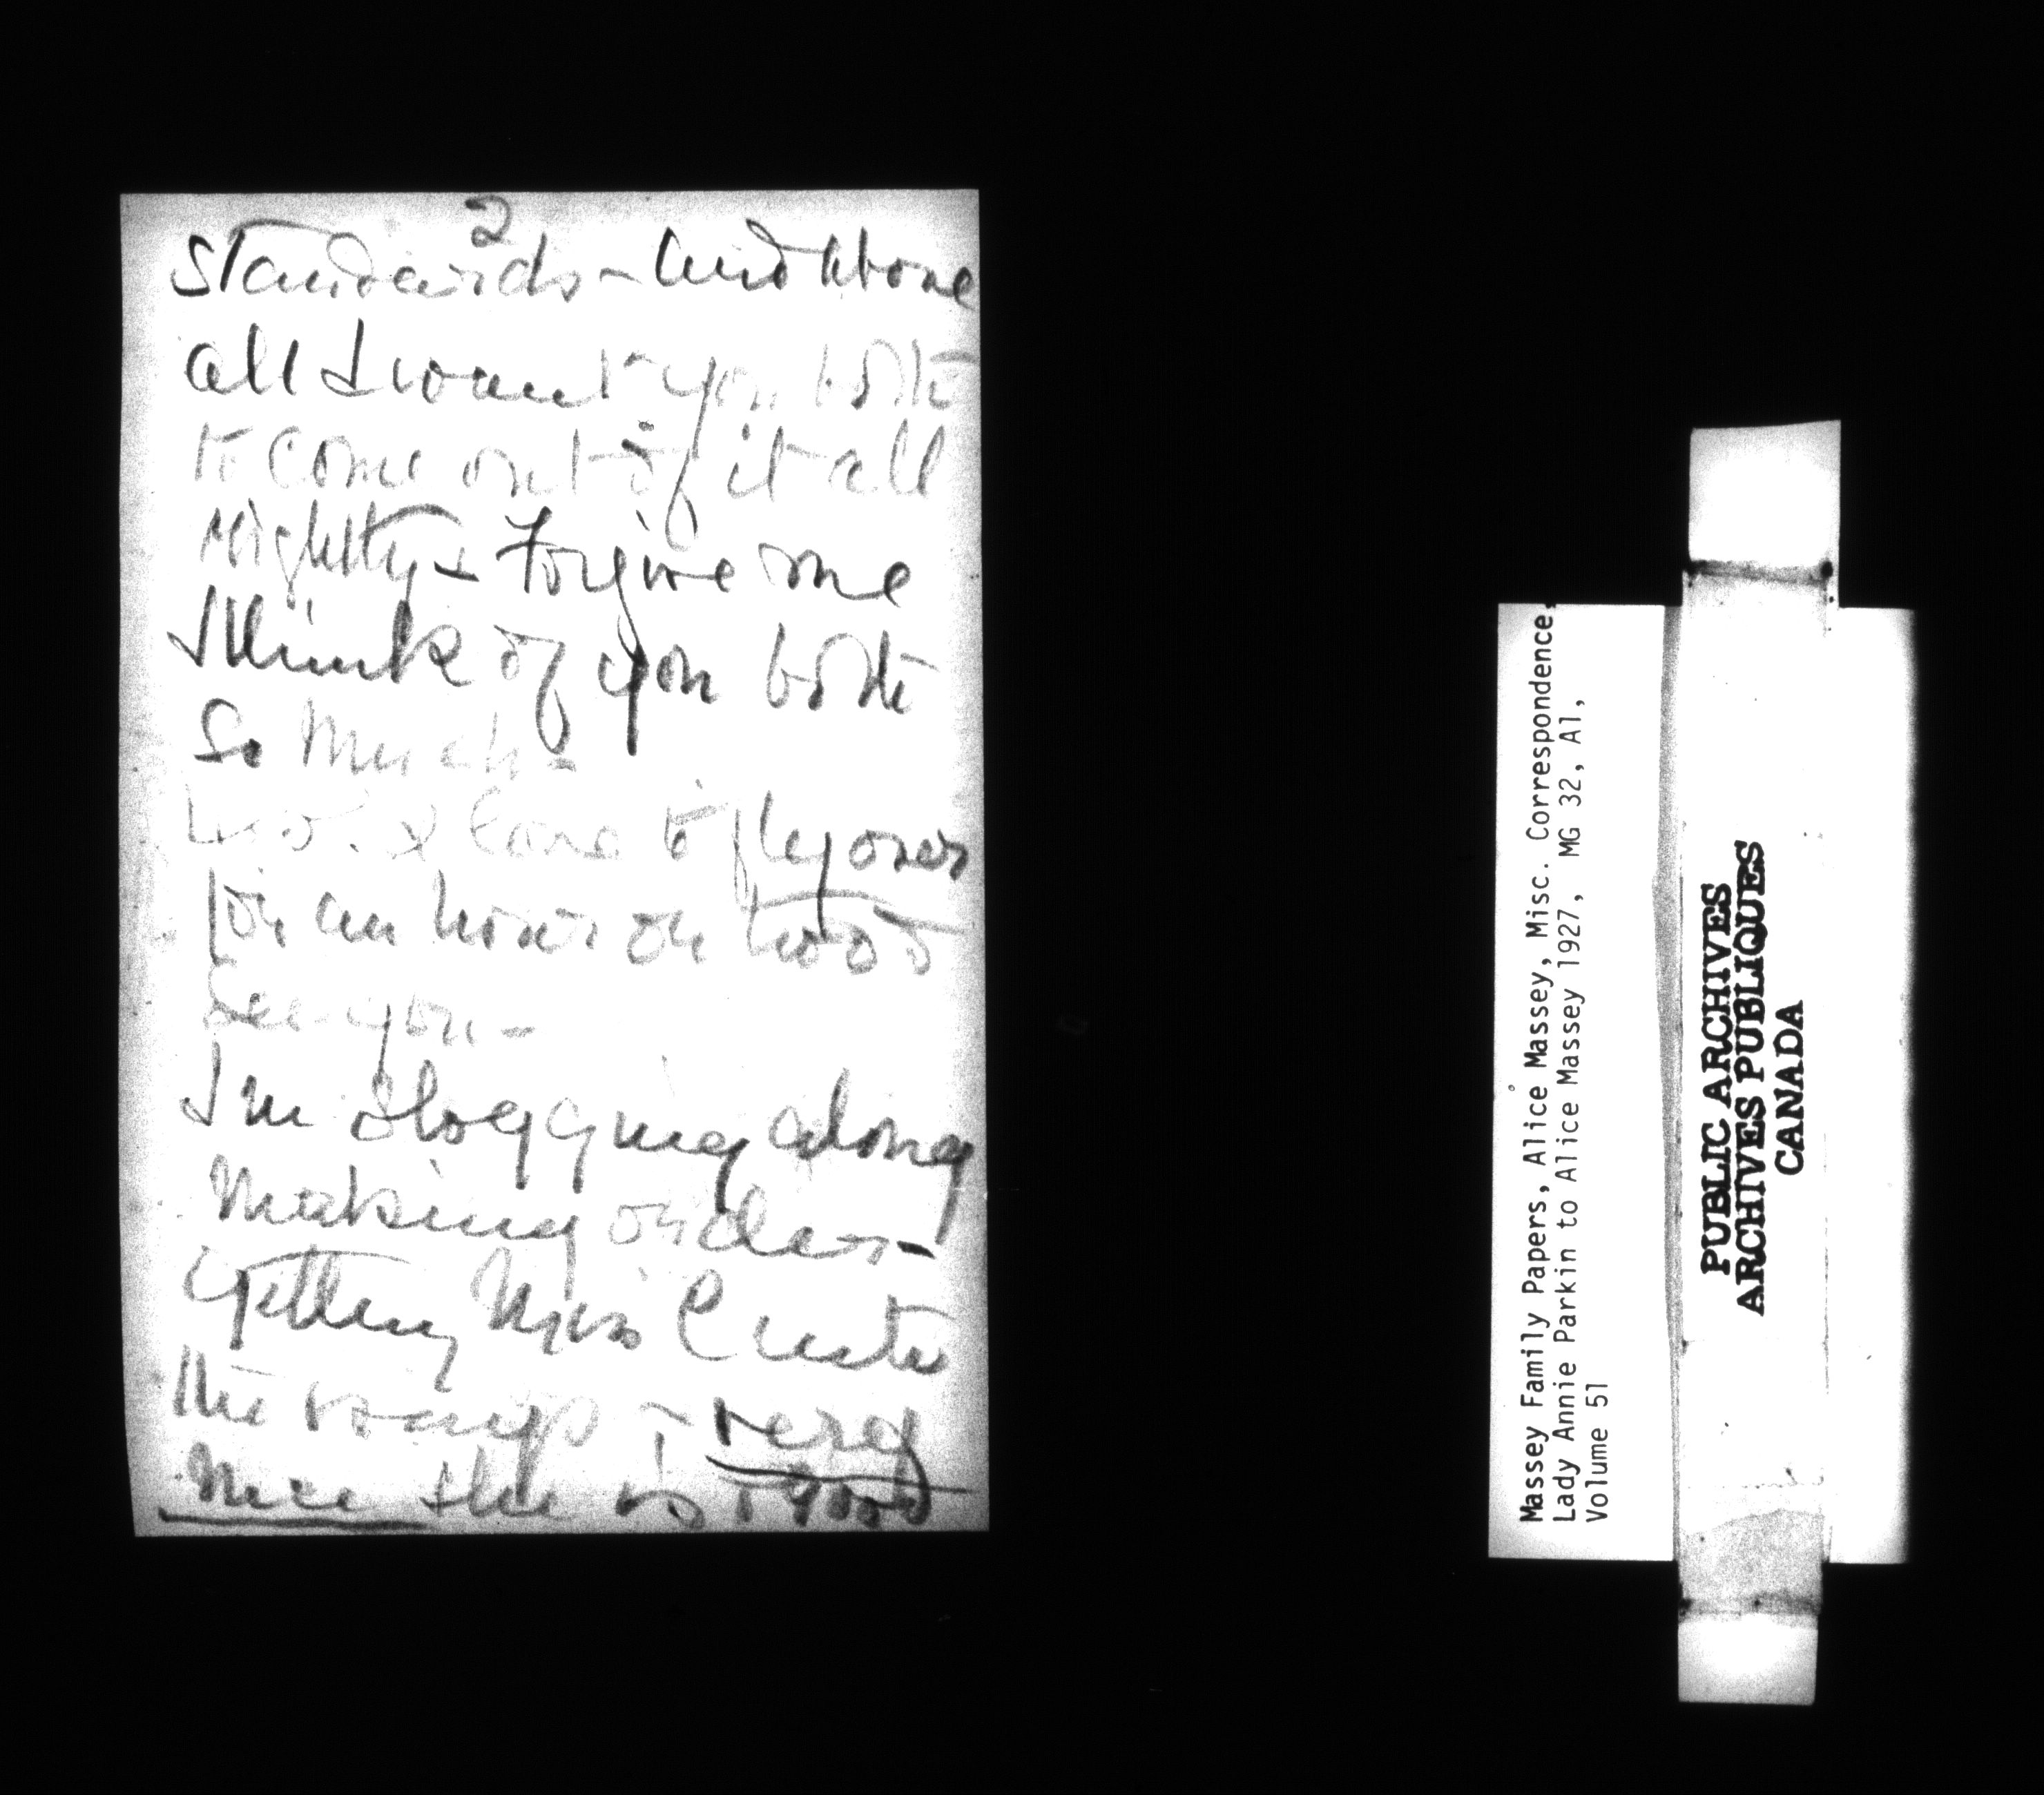 2
standards – And above
all I want you both
to come out of it all
rightly – Forgive me
I think of you both
so much –
to fly over
for an hour or two &
see you –
I'm slogging along
making order –
getting Miss
the –very
nice she is & good
Massey Family Papers, Alice Massey, Misc. Correspondence,
Lady Annie Parkin to Alice Massey 1927, MG 32, A1,
Volume 51
PUBLIC ARCHIVES
ARCHIVES PUBLIQUES
CANADA